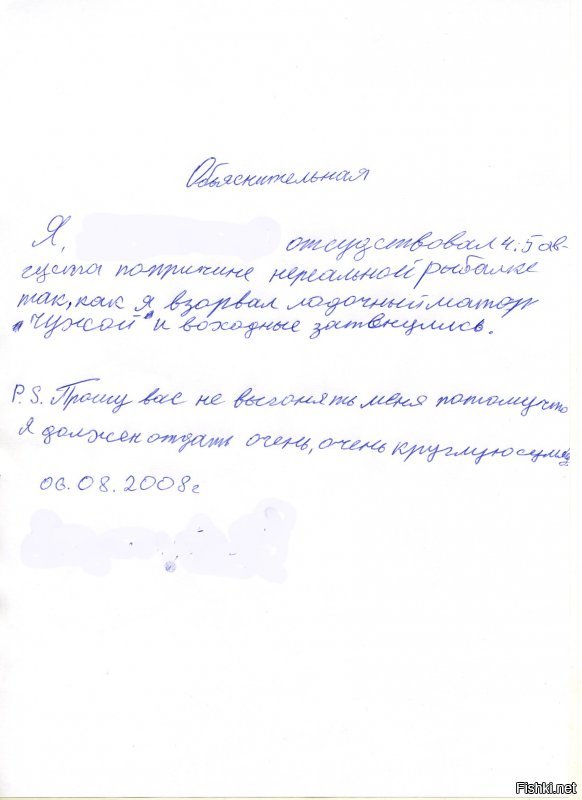 Обьяснительная
Я, отсудствовал 4.5 ав-
густа попричине нереальной рыбалке
так, как я взорвал лодочный матор
"Чужой" и воходные затенулись.
P.S. Прошу вас не выгонять меня потомучто
я должен отдать очень, очень круглую сумму
06.08.2008г
Fishki.net